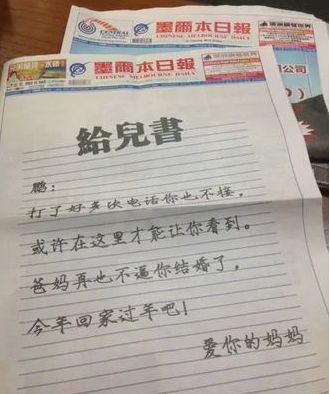 CENTRAL
墨爾本日報
CHINESE MELBOURNE DAILY
墨爾本日報
CHINESE MELBOURNE DAILY
公司
給兒書
鹏：
打了好多次电话你也不接，
或许在这里才能让你看到。
爸妈再也不逼你结婚了，
今年回家过年吧！
爱你的妈妈